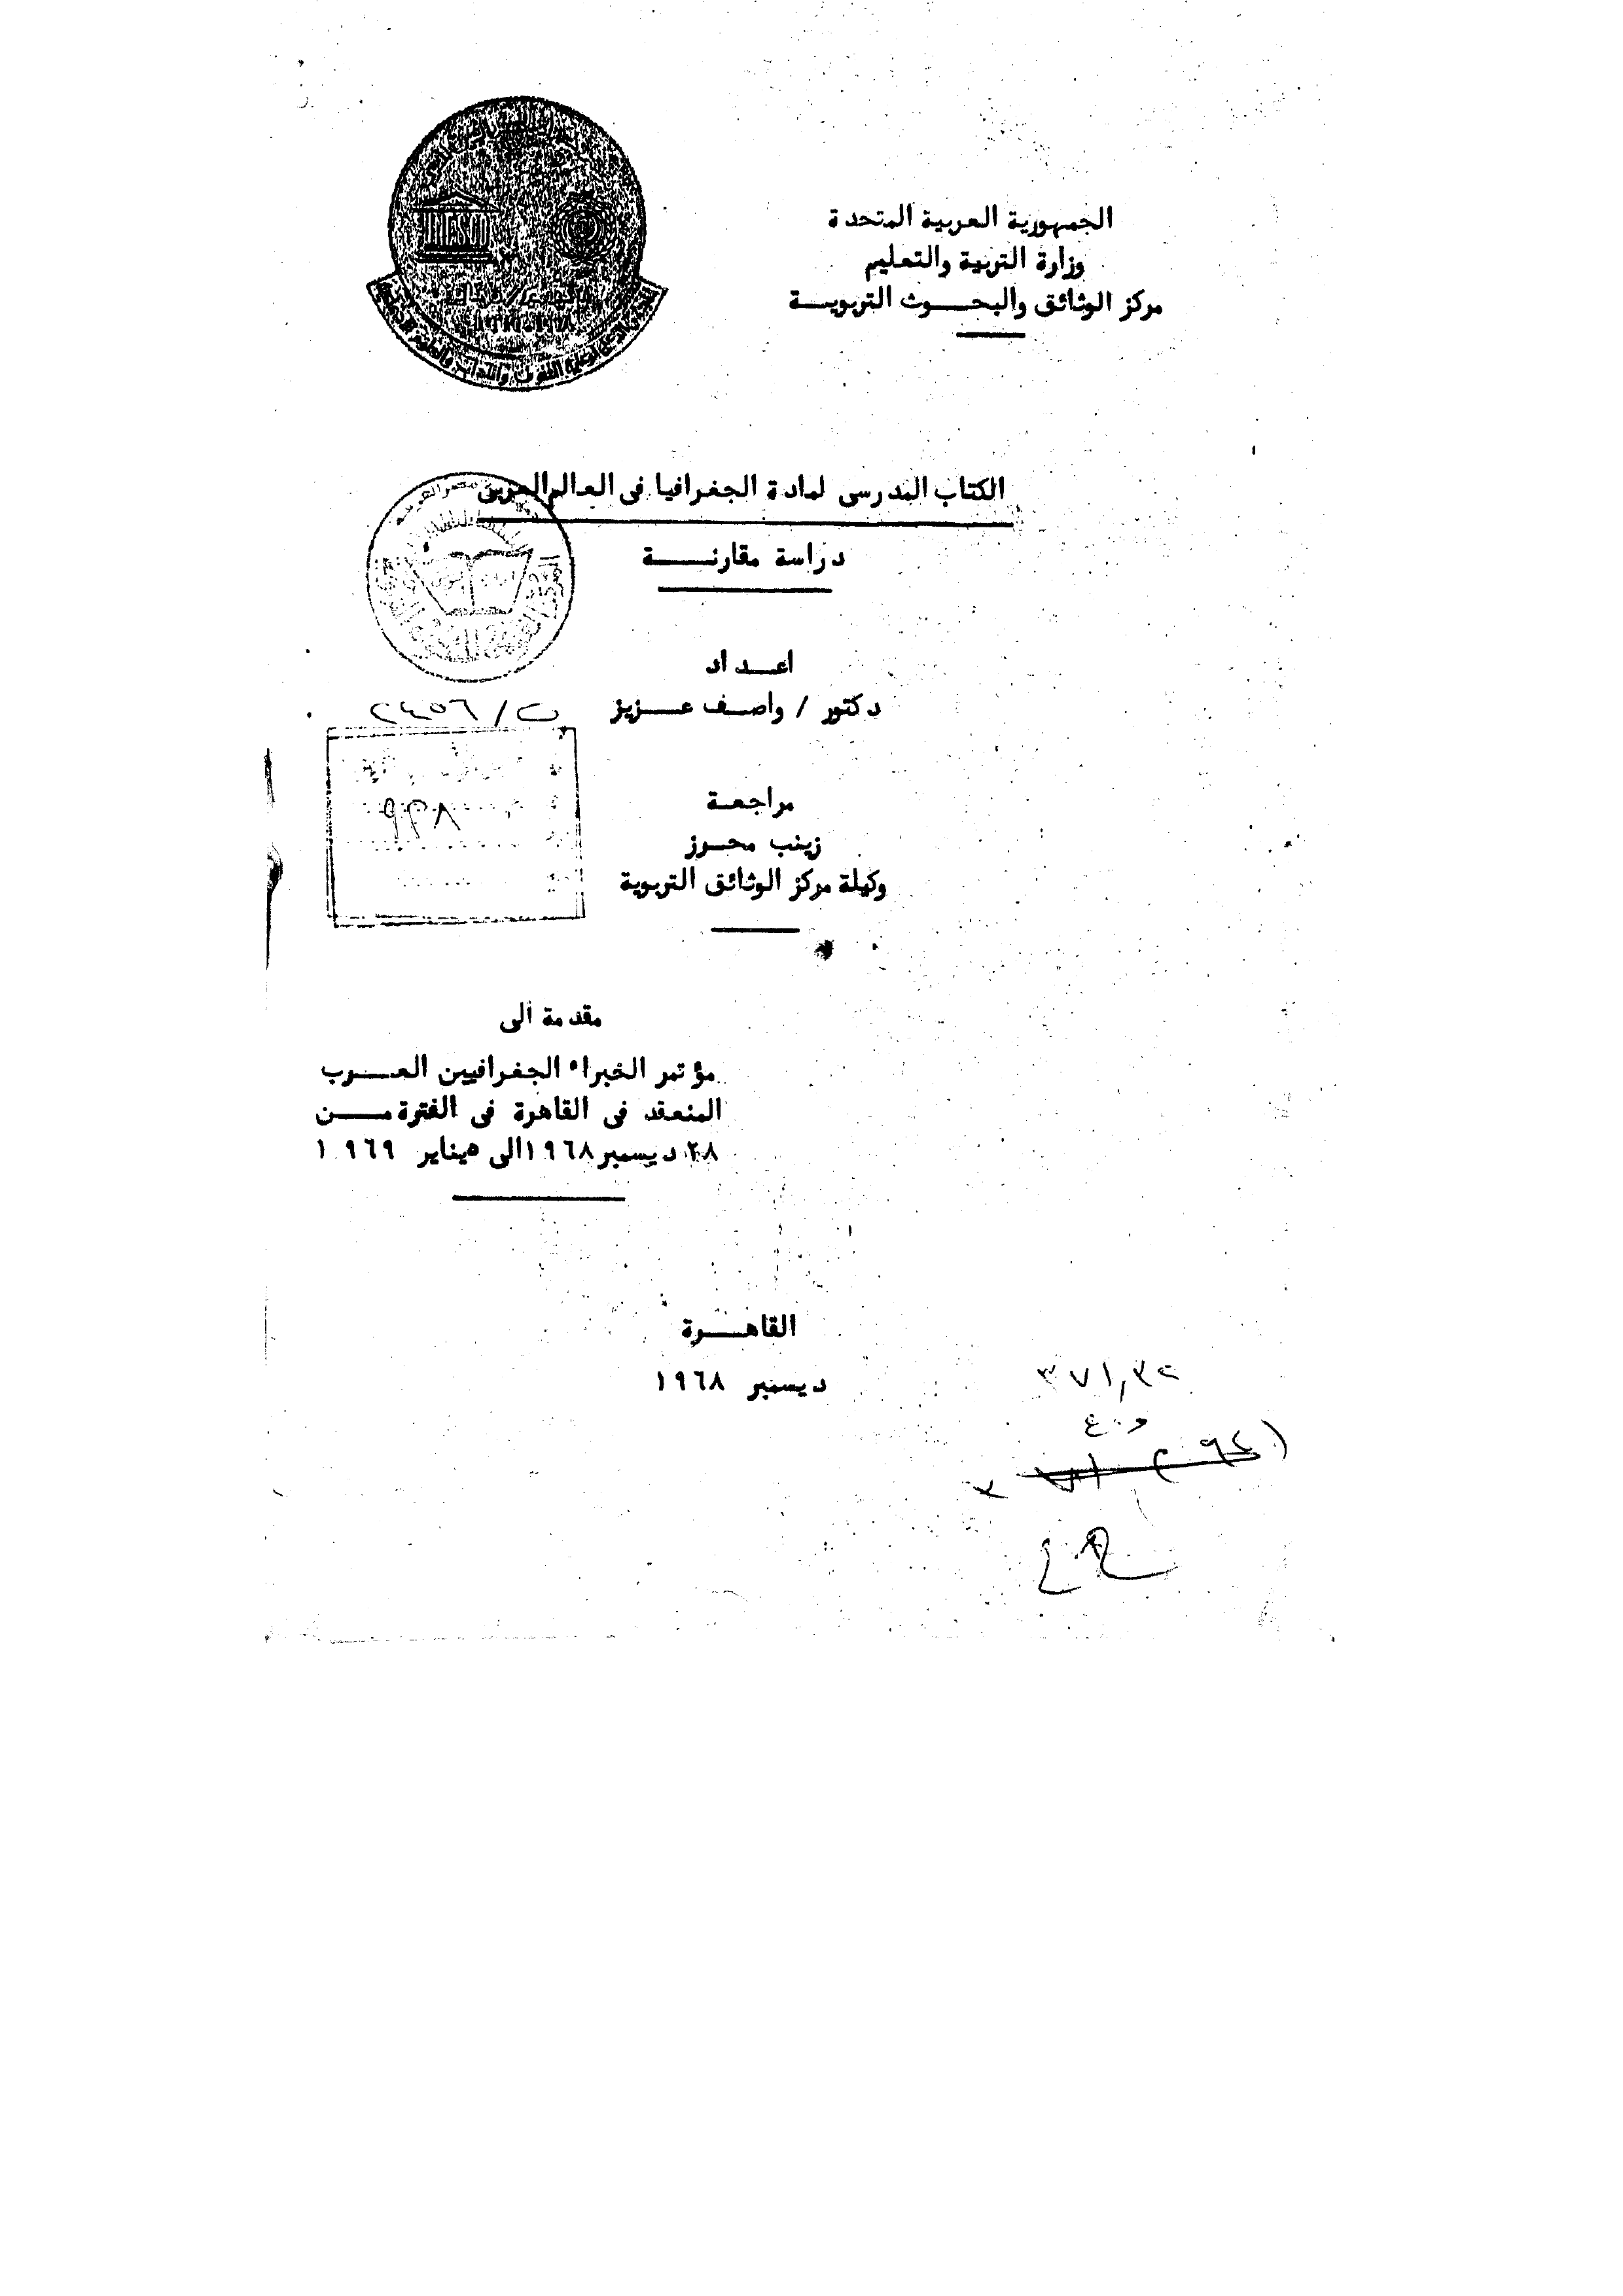 الجمهورية العربية المتحدة
وزارة التربية والتعليم
مركز الوثائق والبحوث التربوية
UNESCO
الكتاب المدرسى لمادة الجغرافيا فى العالم العربى
دراسة مقارنة
اعداد
دكتور / واصف عزيز
مراجعة
زينب محرز
وكيلة مركز الوثائق التربوية
٩٣٨
مقدمة الى
مؤتمر الخبراء الجغرافيين العرب
المنعقد فى القاهرة فى الفترة من
٢٨ ديسمبر ١٩٦٨ الى ٥ يناير ١٩٦٩
القاهرة
ديسمبر ١٩٦٨
٣٧١,٣٢
و.ع